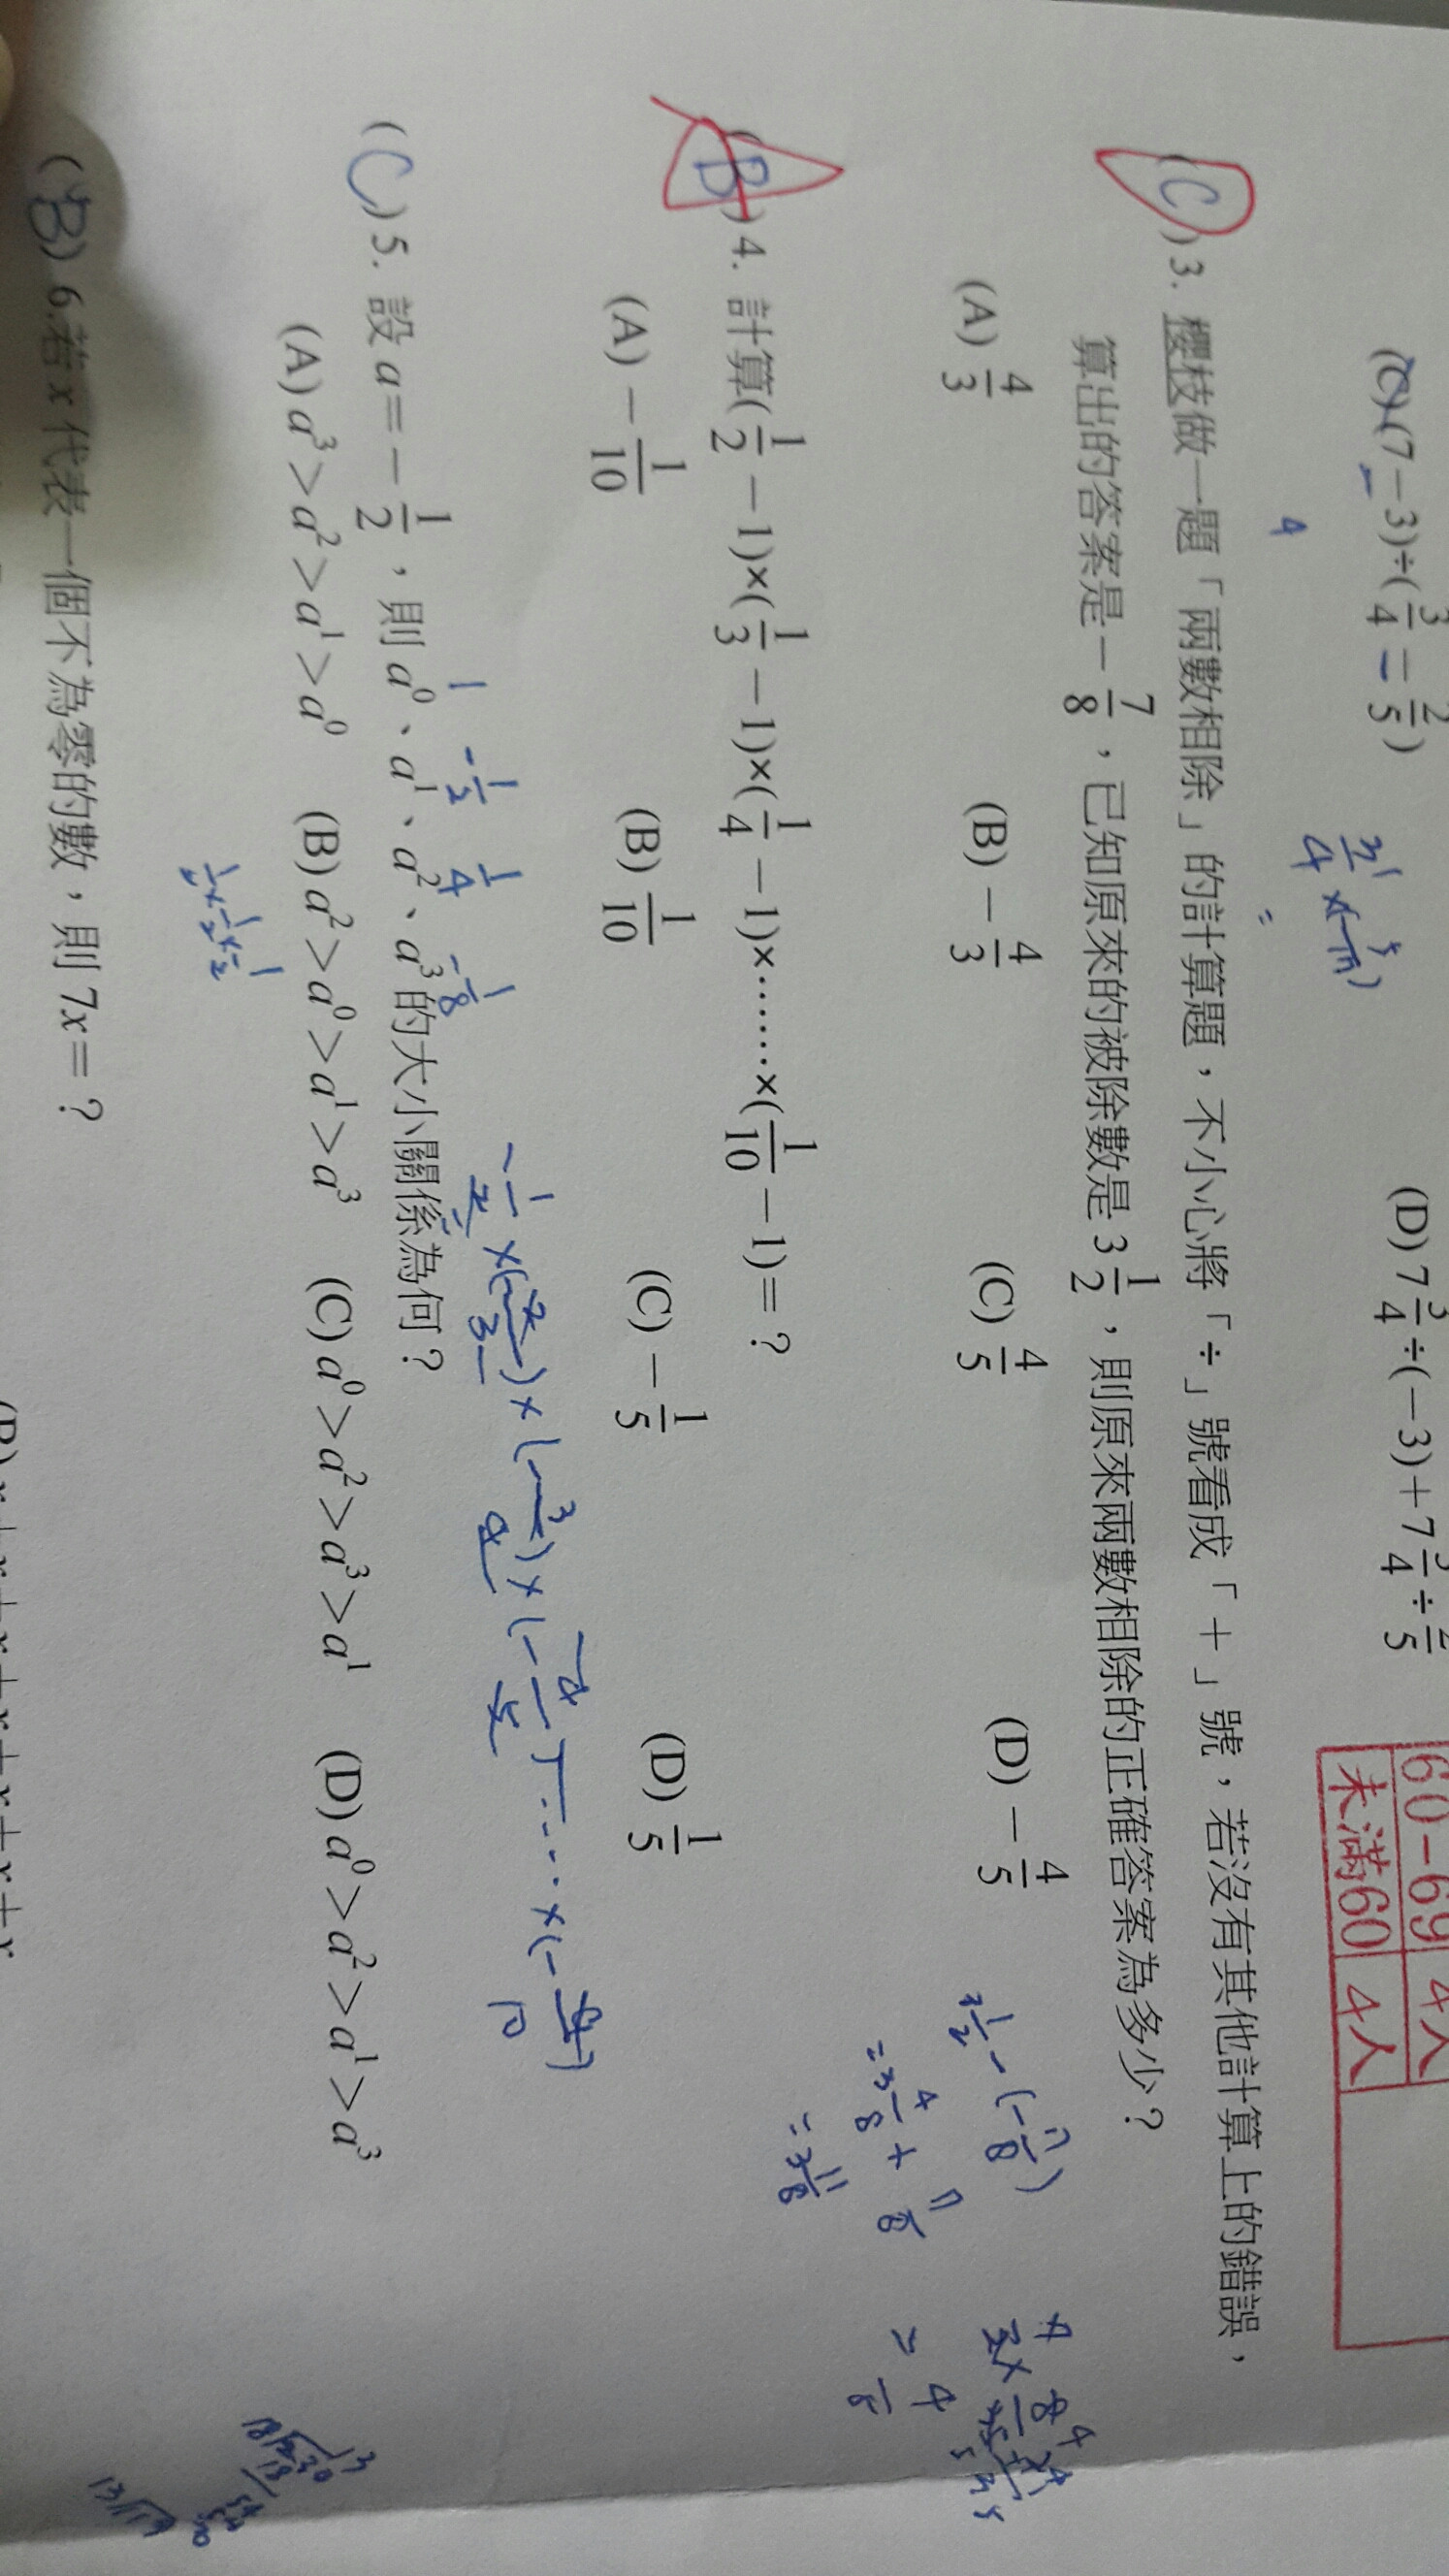 (C) (7－3)÷(3/4－2/5) (D) 7 3/4÷(－3)＋7 3/4÷2/5
60-69 4人
未滿60 4人
4
(C) 3. 櫻枝做一題「兩數相除」的計算題，不小心將「÷」號看成「＋」號，若沒有其他計算上的錯誤，
算出的答案是－7/8，已知原來的被除數是3 1/2，則原來兩數相除的正確答案為多少？
(A) 4/3 (B) －4/3 (C) 4/5 (D) －4/5
3 1/2 - (-7/8)
= 3 4/8 + 7/8
= 3 11/8
(B) 4. 計算(1/2－1)×(1/3－1)×(1/4－1)×……×(1/10－1)＝？
(A) －1/10 (B) 1/10 (C) －1/5 (D) 1/5
-1/2 ×(-2/3)×(-3/4)×(-4/5)....×(-9/10)
1 -1/2 1/4 -1/8
(C) 5. 設a＝－1/2，則a⁰、a¹、a²、a³的大小關係為何？
(A) a³＞a²＞a¹＞a⁰ (B) a²＞a⁰＞a¹＞a³ (C) a⁰＞a²＞a³＞a¹ (D) a⁰＞a²＞a¹＞a³
(B) 6.若x代表一個不為零的數，則7x＝？